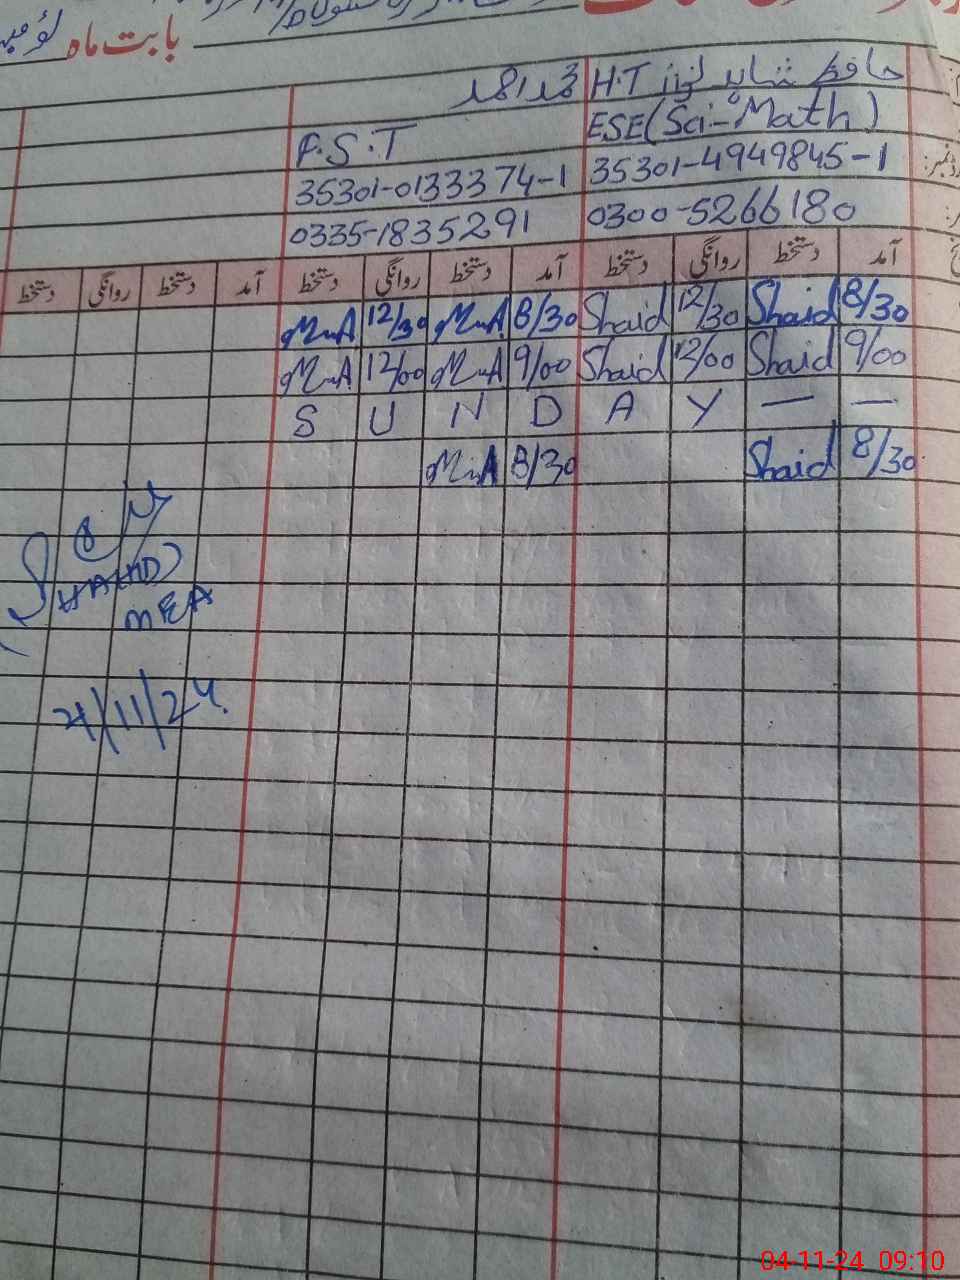 بابت ماہ
حافظ شاہد نواز H.T محمد احمد
ESE(Sci-Math) P.S.T
35301-4949845-1 35301-0133374-1
0300-5266180 0335-1835291
آمد دستخط روانگی دستخط آمد دستخط روانگی دستخط آمد دستخط روانگی دستخط
8/30 Shaid 12/30 Shaid 8/30 M.A 12/30 M.A
9/00 Shaid 12/00 Shaid 9/00 M.A 12/00 M.A
S U N D A Y — —
8/30 Shaid 8/30 M.A
MEA
4/11/24
04-11-24 09:10